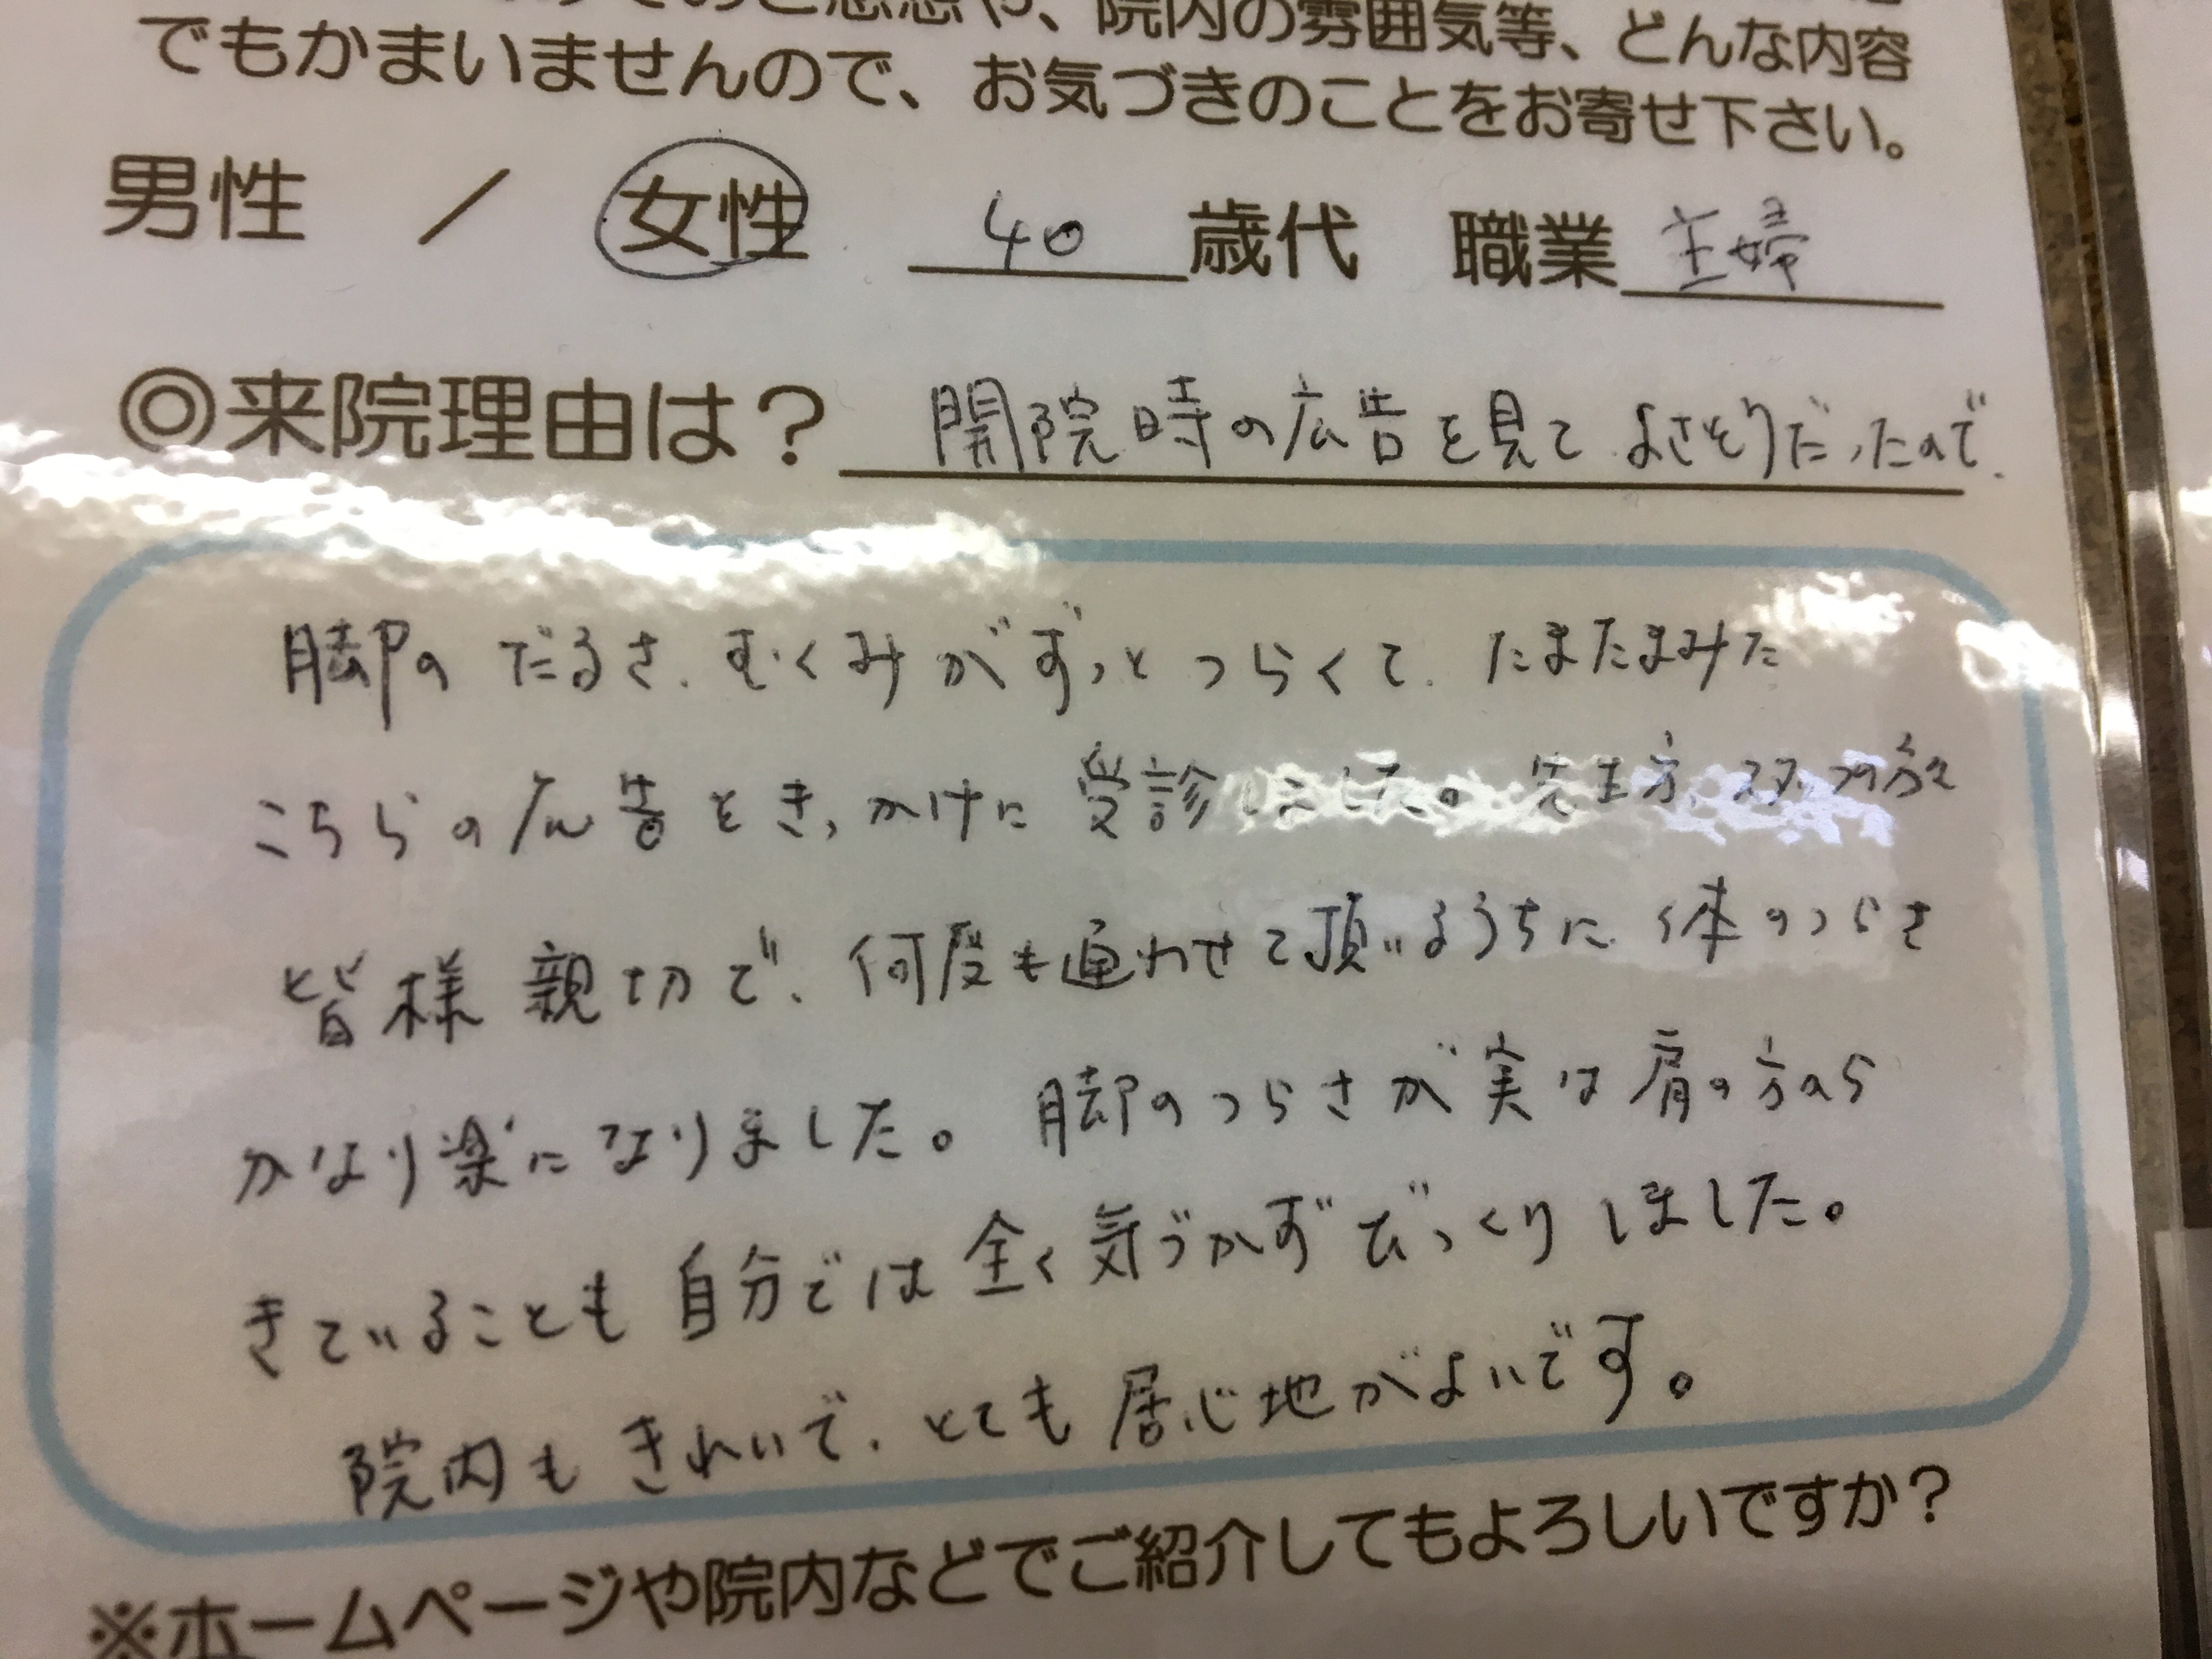 のご感想や、院内の雰囲気等、どんな内容
でもかまいませんので、お気づきのことをお寄せ下さい。
男性 / 女性 40 歳代 職業 主婦
◎来院理由は？ 開院時の広告を見てよさそうだったので、
脚のだるさ、むくみがずっとつらくて、たまたまみた
こちらの広告をきっかけに受診しました。先生方、スタッフの方々
皆様親切で、何度も通わせて頂いるうちに、体のつらさ
かなり楽になりました。脚のつらさが実は肩の方から
きていることも自分では全く気づかずびっくりしました。
院内もきれいで、とても居心地がよいです。
※ホームページや院内などでご紹介してもよろしいですか？